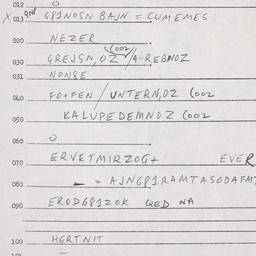 012 0
X 013 and G81NOSN BAJN = CUMEMES
020 NEZER
(002
030 GREJSN, OZ / A-REBNOZ
031 NON8E
060 FO+FEN / UNTERN,OZ (002
050 KALUPEDEMNOZ (002
060 0
070 ERVETMIRZOG+ EVER
080 - = AJNG81RAMTASODAFMT
090 ERODG81ZOK QED NA
100 HERTNIT